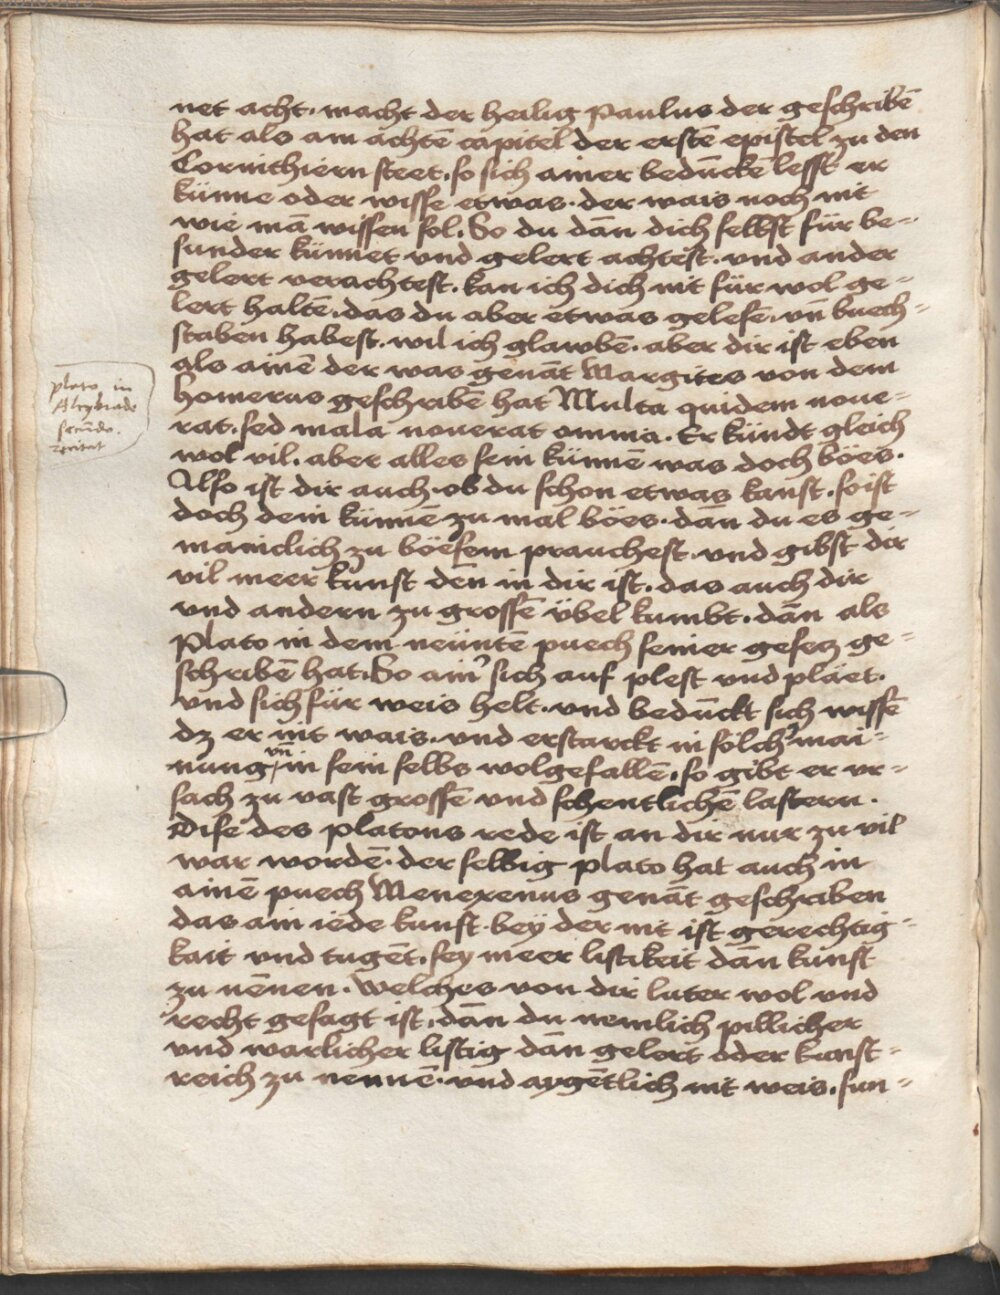 net acht. macht der heilig Paulus der geschribē
hat als am achtē capitel der erstē epistel zu den
Corinthiern steet. so sich ainer bedunckē lesst er
künne oder wisse etwas. der wais noch nit
wie mā wissen sol. So du dān dich selbst für be-
sunder künnet vnd gelert achtest. vnd ander
gelert verachtest. kan ich dich nit für wol ge-
lert haltē. das du aber etwas gelesē. vn̄ buech-
staben habest. wil ich glawbē. aber dir ist eben
als ainē der was genāt Margites von dem
plato in
Alcybiade
secūdo.
recitat
Homerus geschribē hat Multa quidem noue-
rat. sed mala nouerat omnia. Er kündt gleich
wol vil. aber alles sein künnē was doch böes.
Also ist dir auch. ob du schon etwas kanst. so ist
doch dein künnē zu mal böes. dān du es ge-
mainclich zu böesem prauchest. vnd gibst dir
vil meer kunst dēn in dir ist. das auch dir
vnd andern zu grossē übel kumbt. dān als
Plato in dem neüntē puech seiner gesetz ge-
schribē hat. So ain' sich auf plest vnd pläet.
vnd sich für weis helt. vnd beduckt sich wissē
dz er nit wais. vnd erstarckt in sölch' mai-
nung vn̄ in sein selbs wolgefallē. so gibt er vr-
sach zu vast grossē vnd schentlichē lastern.
Dise des platons rede ist an dir nur zu vil
war wordē. der selbig plato hat auch in
ainē puech Menexenus genāt geschriben
das ain iede kunst. bey der nit ist gerechtig-
kait vnd tugēt. sey meer listikeit dān kunst
zu nēnen. Welches von dir luter wol vnd
recht gesagt ist. dān du nemlich pillicher
vnd warlicher listig dān gelert oder kunst-
reich zu nennē. vnd aygētlich nit weis. sun-